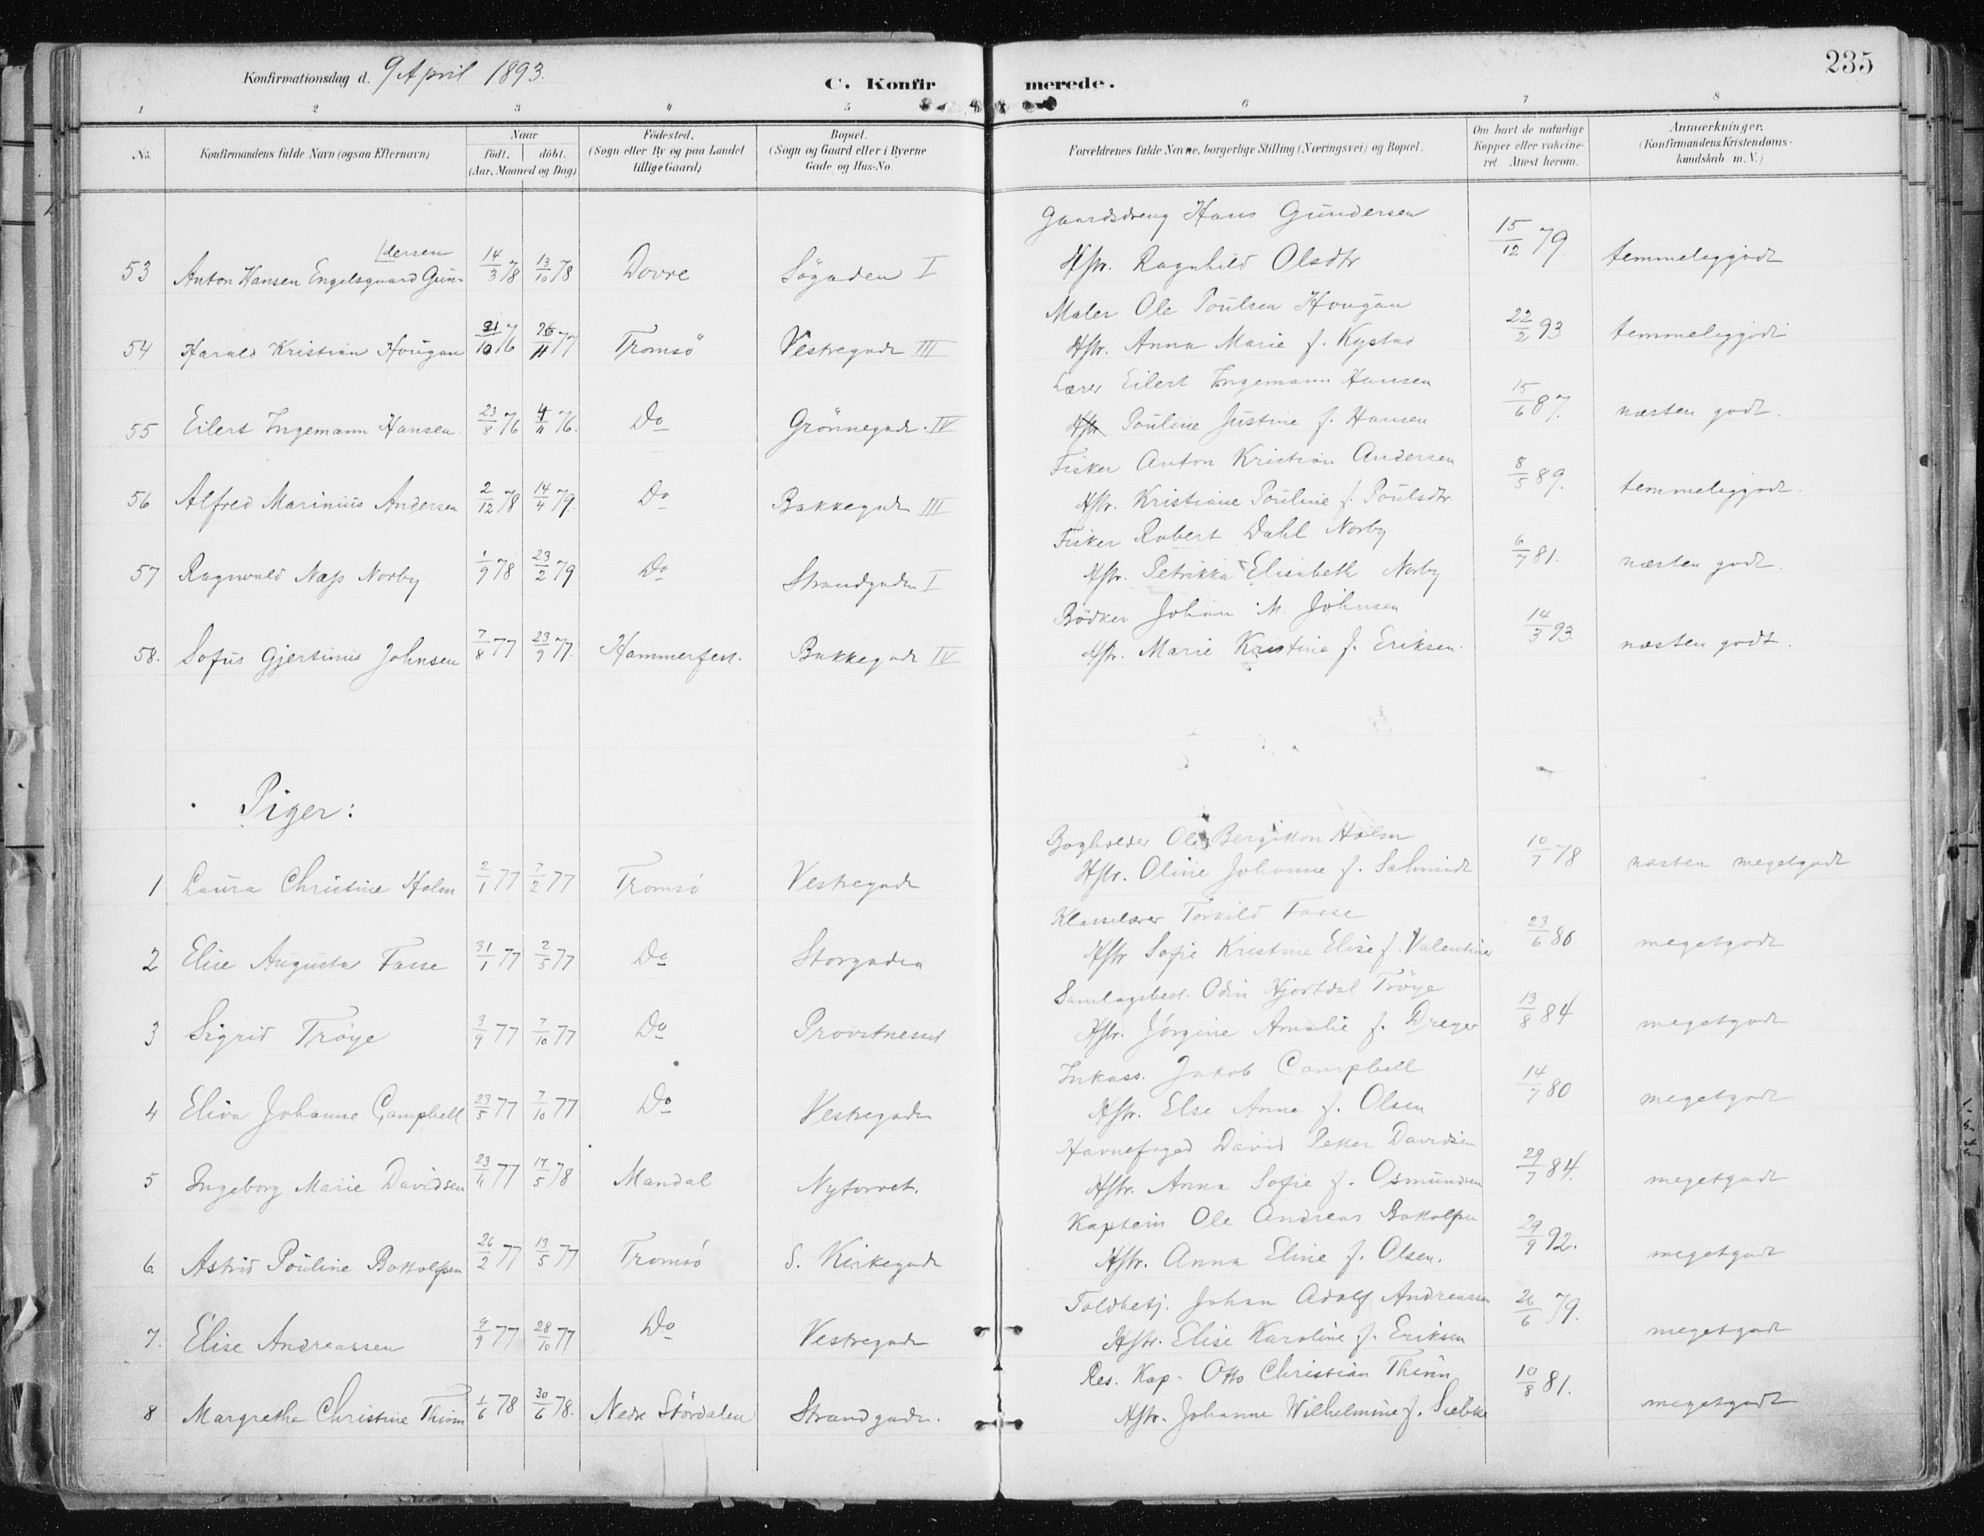 235
Konfirmationsdag d. 9 April 1893.
C. Konfirmerede.
1 2 3 4 5 6 7 8
No. Konfirmandens fulde Navn (ogsaa Efternavn) Naar født, døbt, (Aar, Maaned og Dag) Fødested. (Sogn eller By og paa Landet tillige Gaard) Bopæl. (Sogn og Gaard eller i Byerne Gade og Hus-No. Forældrenes fulde Navne, borgerlige Stilling (Næringsvei) og Bopæl. Om havt de naturlige Kopper eller vakcineret. Attest herom. Anmærkninger. (Konfirmandens Kristendomskundskab m. V.)
Gaardsdreng Hans Gundersen
53 Anton Hansen Engelsgaard Gundersen 14/3 78 13/10 78 Dovre Søgaden I Hstr. Ragnhild Olsdtr 15/12 79. temmeliggodt
Maler Ole Poulsen Hougan
54 Harald Kristian Hougan 21/10 76 26/11 77 Tromsö Vestregade III Hstr. Anna Marie f. Kystad 22/2 93 temmeliggodt
Lærer Eilert Ingemann Hansen
55 Eilert Ingemann Hansen 23/8 76 4/11 76. Do Grönnegade. IV Hstr Pouline Justine f. Hansen. 15/6 87. næsten godt.
Fisker Anton Kristian Andersen
56 Alfred Marinius Andersen 2/12 78 14/4 79 Do Bakkegade III Hstr. Kristiane Pouline f. Poulsdtr. 8/5 89. temmeliggodt.
Fisker Robert Dahl Norby
57 Ragnvald Næss Norby 1/9 78 23/2 79 Do Strandgaden I Hstr. Petrikka Elisabeth Norby 6/7 81. næsten godt.
Bödker Johan M. Johnsen
58. Sofus Gjertinus Johnsen 7/8 77 23/9 77. Hammerfest. Bakkegade IV Hstr. Marie Kristine f. Eriksen. 14/3 93 næsten godt.
Piger:
Bogholder Ole Bergithon Holm
1 Laura Christine Holm 2/1 77 7/2 77 Tromsö Vestregade Hstr. Oline Johanne f. Schmidt 10/7 78 næsten megetgodt
Klasselærer Torkild Fasse
2 Elise Augusta Fasse 31/1 77 2/5 77 Do Storgaden Hstr Sofie Kristine Elise f. Valentiner 23/6 80 megetgodt
Samlagsbest. Odin Hjortdal Tröye
3 Sigrid Tröye 3/9 77 7/10 77 Do Provstnesset Hstr. Jörgine Amalie f. Dreyer 13/8 84 megetgodt
Inkass. Jakob Campbell
4 Eliva Johanne Campbell 23/5 77 7/10 77 Do Vestregaden Hstr. Else Anna f. Olsen 14/7 80 megetgodt
Havnefoged David Petter Davidsen
5 Ingeborg Marie Davidsen 23/11 77 17/5 78 Mandal Nytorvet. Hstr. Anna Sofie f. Osmundsen 29/7 84. megetgodt
Kaptein Ole Andreas Bottolfsen
6. Astrid Pouline Bottolfsen 26/2 77 13/5 77 Tromsö S. Kirkegade Hstr. Anna Eline f. Olsen. 29/9 92. megetgodt
Toldbetj. Johan Adolf Andreassen
7. Elise Andreassen 9/9 77 28/10 77 Do Vestregade Hstr. Elise Karoline f. Eriksen 26/6 79. megetgodt
Res. Kap. Otto Christian Thinn
8 Margrethe Christine Thinn 1/6 78 30/6 78. Nedre Stördalen Strandgade. Hstr. Johanne Wilhelmine f. Siebke 10/8 81. megetgodt